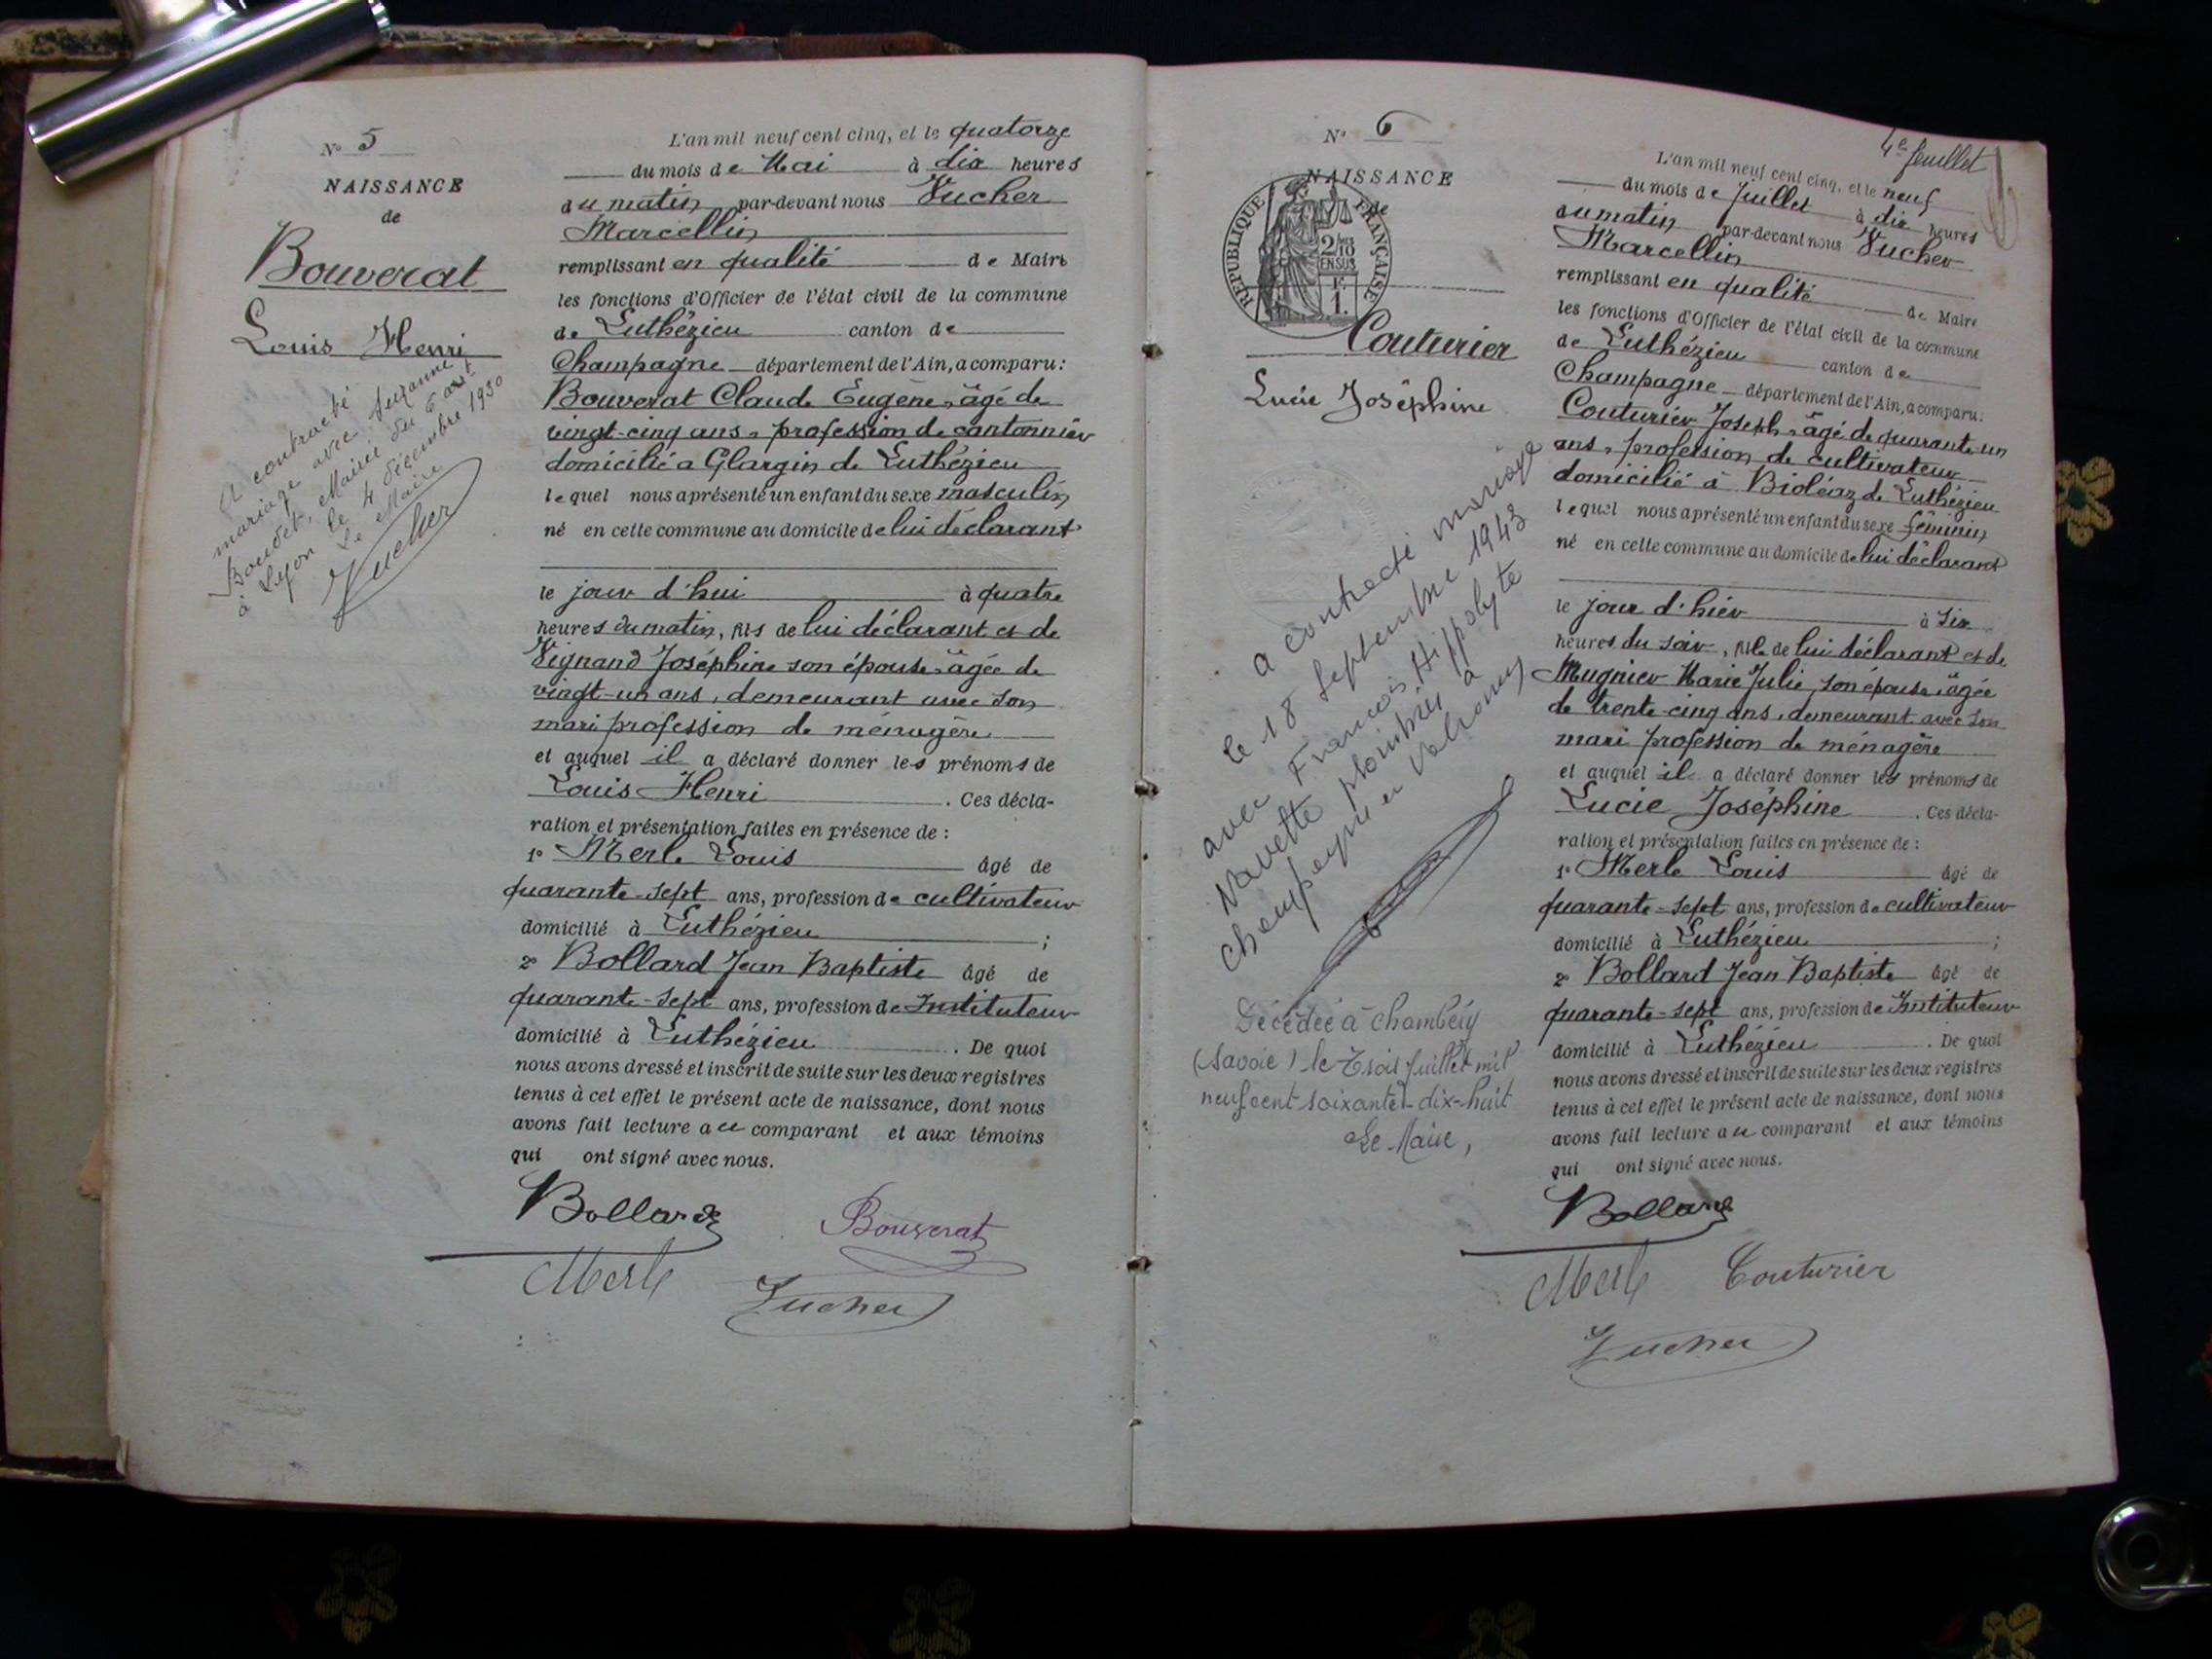 N° 5
NAISSANCE
de
Bouverat
Louis Henri
A contracté
mariage avec Suzanne
Boudet, Mairie du 6 arrt
à Lyon le 4 décembre 1930
Le Maire
Vucher
L'an mil neuf cent cinq, et le quatorze
du mois de Mai à dix heures
du matin par-devant nous Vucher
Marcellin
remplissant en qualité de Maire
les fonctions d'Officier de l'état civil de la commune
de Luthézieu canton de
Champagne département de l'Ain, a comparu:
Bouverat Claude Eugène, âgé de
vingt-cinq ans, profession de cantonnier
domicilié a Glargin de Luthézieu
lequel nous a présenté un enfant du sexe masculin
né en cette commune au domicile de lui déclarant
le jour d'hui à quatre
heures du matin, fils de lui déclarant et de
Vignand Joséphine son épouse, âgée de
vingt-un ans, demeurant avec son
mari profession de ménagère
et auquel il a déclaré donner les prénoms de
Louis Henri . Ces décla-
ration et présentation faites en présence de :
1° Merle Louis âgé de
quarante-sept ans, profession de cultivateur
domicilié à Luthézieu ;
2° Bollard Jean Baptiste âgé de
quarante-sept ans, profession de Instituteur
domicilié à Luthézieu . De quoi
nous avons dressé et inscrit de suite sur les deux registres
tenus à cet effet le présent acte de naissance, dont nous
avons fait lecture au comparant et aux témoins
qui ont signé avec nous.
Bollard Bouverat
Merle Vucher
N° 6
NAISSANCE
de
RÉPUBLIQUE FRANÇAISE
2/10
EN SUS
F.
1.
Couturier
Lucie Joséphine
a contracté mariage
le 18 septembre 1943
avec François Hippolyte
Navette plombier à
Champagne en Valromey
Décédée à Chambéry
(Savoie) le trois juillet mil
neuf cent soixante-dix-huit
Le Maire,
4e feuillet
L'an mil neuf cent cinq, et le neuf
du mois de Juillet à dix heures
du matin par-devant nous Vucher
Marcellin
remplissant en qualité de Maire
les fonctions d'Officier de l'état civil de la commune
de Luthézieu canton de
Champagne département de l'Ain, a comparu:
Couturier Joseph, âgé de quarante-un
ans, profession de cultivateur
domicilié à Bioléaz de Luthézieu
lequel nous a présenté un enfant du sexe féminin
né en cette commune au domicile de lui déclarant
le jour d'hier à six
heures du soir, fille de lui déclarant et de
Mugnier Marie Julie, son épouse, âgée
de trente-cinq ans, demeurant avec son
mari profession de ménagère
et auquel il a déclaré donner les prénoms de
Lucie Joséphine . Ces décla-
ration et présentation faites en présence de :
1° Merle Louis âgé de
quarante-sept ans, profession de cultivateur
domicilié à Luthézieu ;
2° Bollard Jean Baptiste âgé de
quarante-sept ans, profession de Instituteur
domicilié à Luthézieu . De quoi
nous avons dressé et inscrit de suite sur les deux registres
tenus à cet effet le présent acte de naissance, dont nous
avons fait lecture au comparant et aux témoins
qui ont signé avec nous.
Bollard
Merle Couturier
Vucher